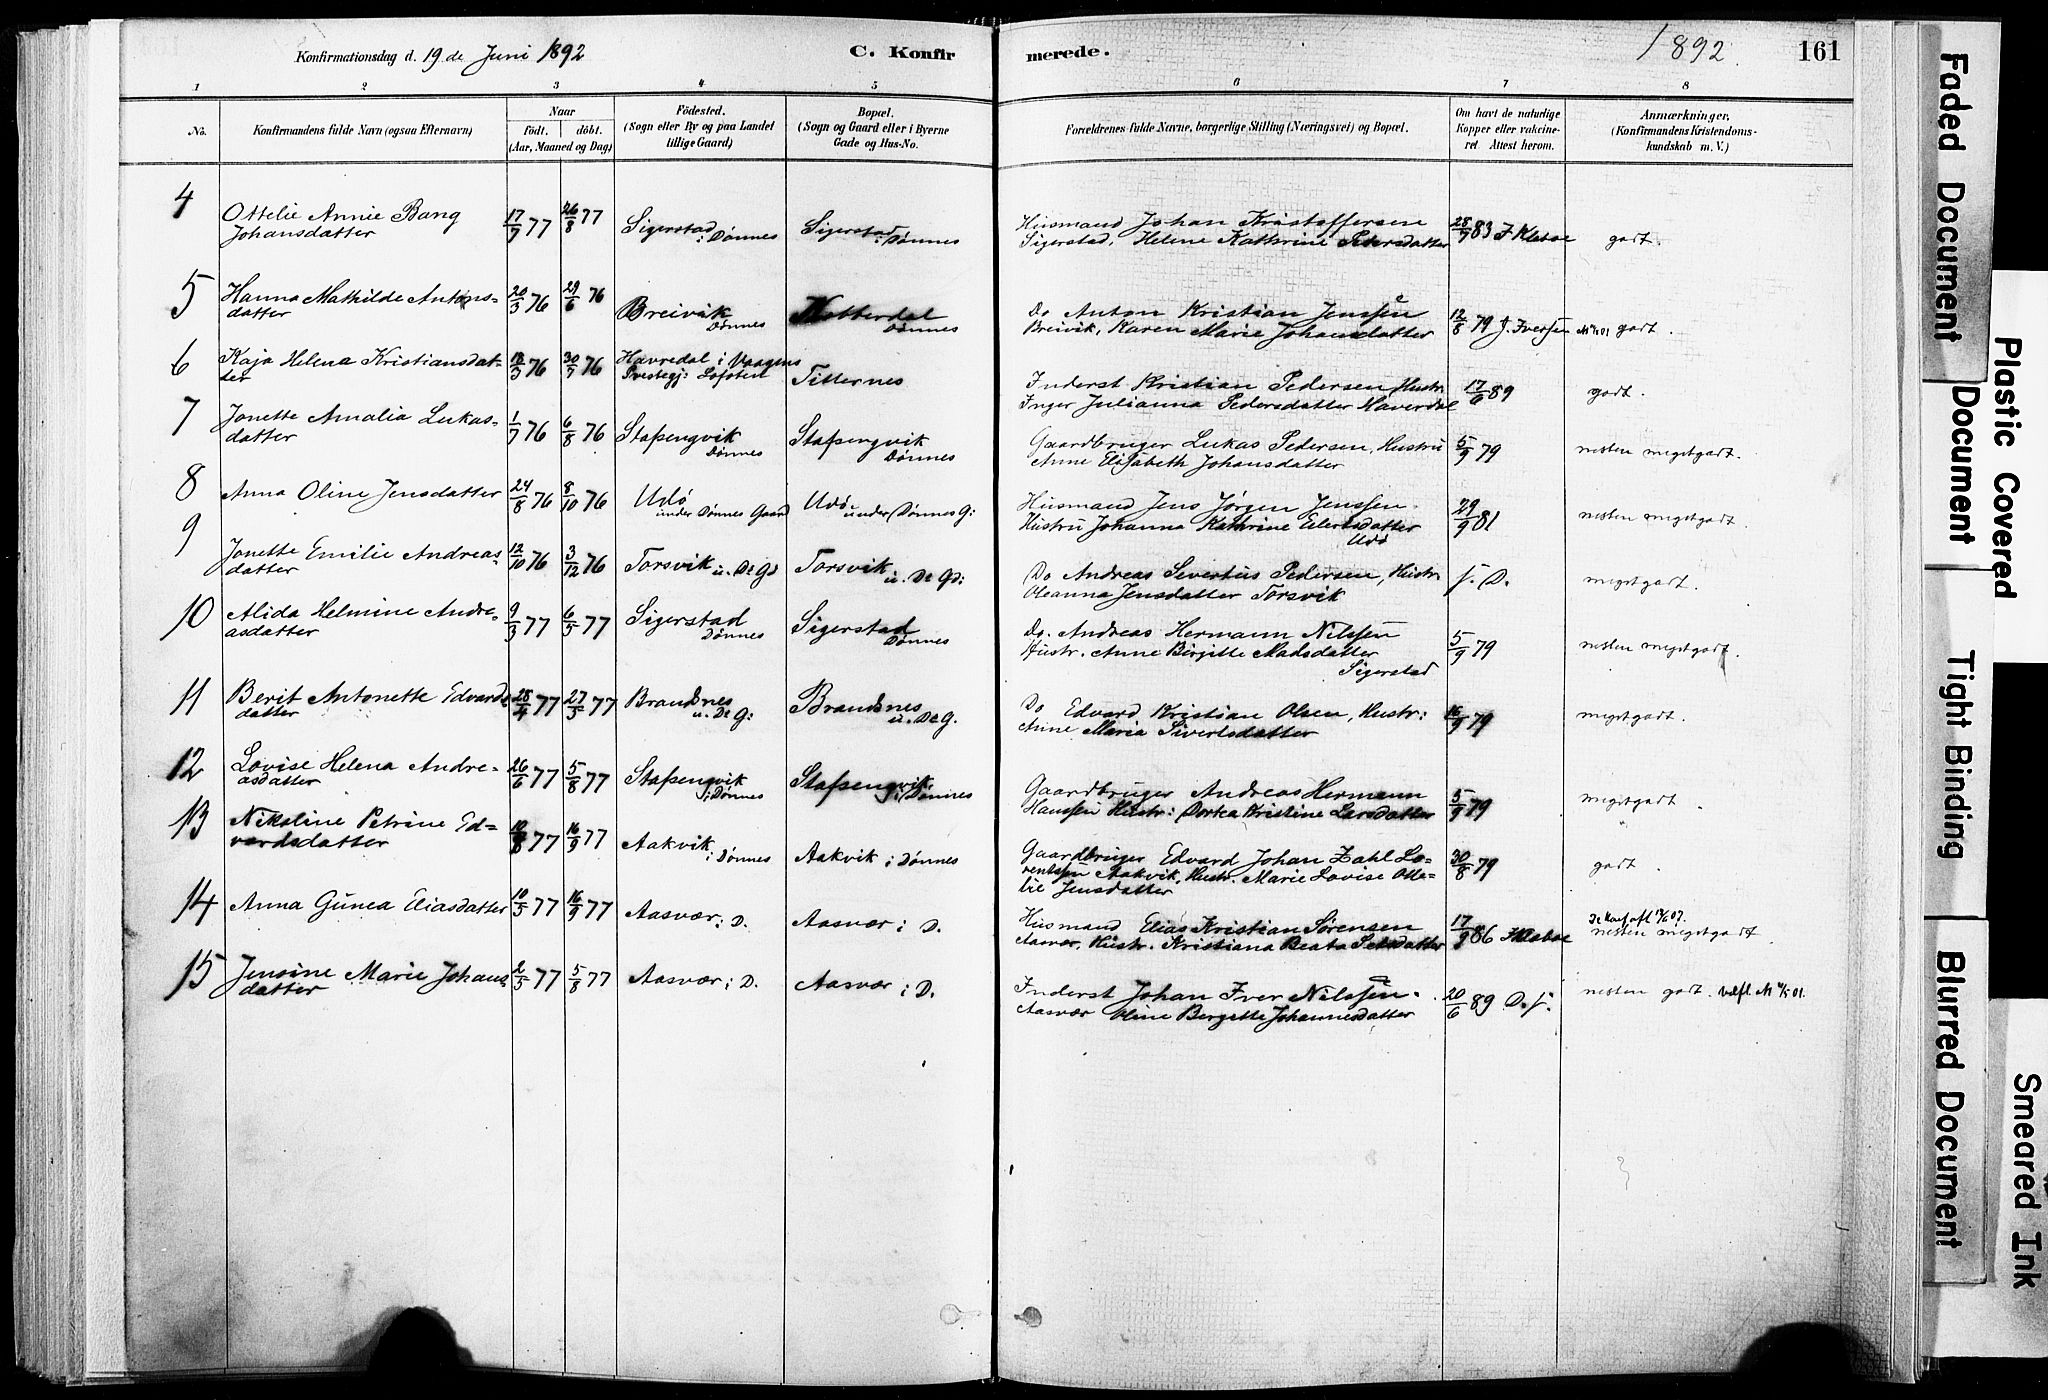 Konfirmationsdag d. 19 de Juni 1892
C. Konfirmerede.
1892.
161
1 2 3 4 5 6 7 8
No.
Konfirmandens fulde Navn (ogsaa Efternavn)
Naar
født. døbt.
(Aar, Maaned og Dag)
Fødested.
(Sogn eller By og paa Landet
tillige Gaard)
Bopæl.
(Sogn og Gaard eller i Byerne
Gade og Hus-No.
Forældrenes fulde Navne, borgerlige Stilling (Næringsvei) og Bopæl.
Om havt de naturlige
Kopper eller vakcine-
ret. Attest herom.
Anmærkninger.
(Konfirmandens Kristendoms-
kundskab m. V.)
4 Ottelie Annie Bang
Johansdatter
17/7 77 26/8 77 Sigerstad
i Dønnes
Sigerstad
i Dønnes
Husmand Johan Kristoffersen
Sigerstad, Helene Kathrine Pedersdatter
28/9 83 J Klaboe godt.
5 Hanna Mathilde Antons-
datter
20/3 76 29/6 76 Breivik
Dønnes
Dønnes
Do Anton Kristian Jenssen
Breivik, Karen Marie Johansdatter
12/8 79 J. Iversen godt.
6 Kaja Helena Kristiansdat-
ter
18/3 76 30/7 76 Havredal i Vaagens
Prestegj: Lofoten
Titternes
Inderst Kristian Pedersen, Hustr.
Inger Julianna Pedersdatter Haverdal
17/6 89 godt.
7 Jonette Amalia Lukas-
datter
1/7 76 6/8 76 Stafsengvik
Dønnes
Stafsengvik
Dønnes
Gaardbruger Lukas Pedersen, Hustru
Anne Elisabeth Johansdatter
5/9 79 nesten megetgodt.
8 Anna Oline Jensdatter 24/8 76 8/10 76 Udø
under Dønnes Gaard
Udø
under Dønnes G:
Husmand Jens Jørgen Jenssen.
Hustru Johanna Kathrine Eilertsdatter
Udø
29/9 81 nesten megetgodt.
9 Jonette Emilie Andreas-
datter
12/10 76 3/12 76 Torsvik u. Ds Gd
Torsvik
u. Ds Gd:
Do Andreas Severtus Pedersen, Hustr.
Oleanna Jensdatter Torsvik
f. D. megetgodt.
10 Alida Helmine Andre-
asdatter
9/3 77 6/5 77 Sigerstad
Dønnes
Sigerstad
Dønnes
Do. Andreas Hermann Nilssen
Hustr. Anne Birgitte Madsdatter
Sigerstad
5/9 79 nesten megetgodt.
11 Berit Antonette Edvards-
datter
28/4 77 27/5 77 Brandsnes
u. Ds G:
Brandsnes
u. Ds G.
Do Edvard Kristian Olsen, Hustr:
Anne Maria Sivertsdatter
16/9 79 megetgodt.
12 Lovise Helena Andre-
asdatter
26/6 77 5/8 77 Stafsengvik
i Dønnes
Stafsengvik
i Dønnes
Gaardbruger Andreas Hermann
Hanssen Hustr: Dorka Kristine Larsdatter
5/9 79 megetgodt.
13 Nikoline Petrine Ed-
vardsdatter
10/8 77 16/9 77 Aakvik i Dønnes
Aakvik i Dønnes
Gaardbruger Edvard Johan Zahl Lo-
rentssen Aakvik, Hustr. Marie Lovise Otte-
lie Jensdatter
30/8 79 godt.
14 Anna Gunea Eliasdatter 10/5 77 16/9 77 Aasvær i D.
Aasvær i D.
Husmand Elias Kristian Sørensen
Aasvær, Hustr. Kristiana Beata
17/9 86 J Klaboe
nesten megetgodt.
15 Jensine Marie Johans-
datter
2/5 77 5/8 77 Aasvær i D.
Aasvær i D.
Inderst Johan Iver Nilssen.
Aasvær Oline Bergette Johannesdatter
20/6 89 D. f. nesten godt.
Faded Document
Plastic Covered
Document
Tight Binding
Blurred Document
Smeared Ink